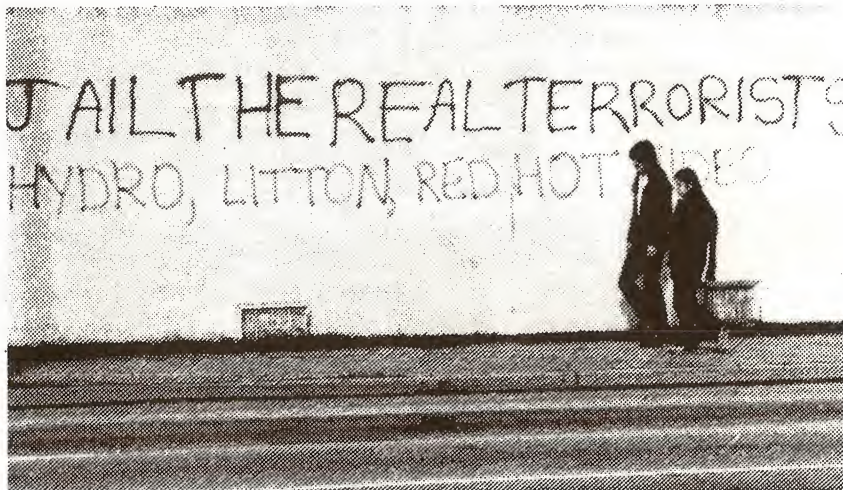 JAIL THE REAL TERRORISTS
HYDRO, LITTON, RED HOT VIDEO